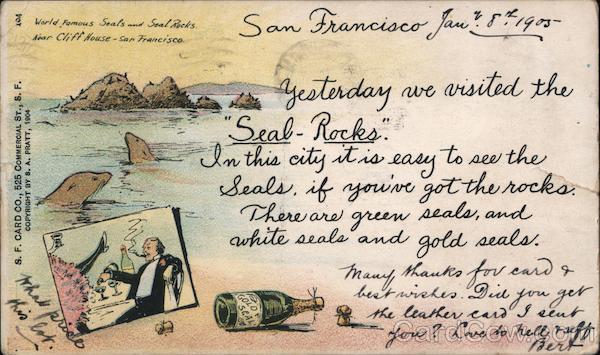 104
World Famous Seals and Seal Rocks.
Near Cliff House - San Francisco.
San Francisco Jany. 8th 1905
Yesterday we visited the
"Seal-Rocks".
In this city it is easy to see the
Seals, if you've got the rocks.
There are green seals, and
white seals and gold seals.
S. F. CARD CO., 525 COMMERCIAL ST., S. F.
COPYRIGHT BY S. A. PRATT, 1904
GOLD SEAL
What price
this lot.
Many thanks for card &
best wishes. Did you get
the leather card I sent
you? Love to Nell & self
Bert
CardCow.com